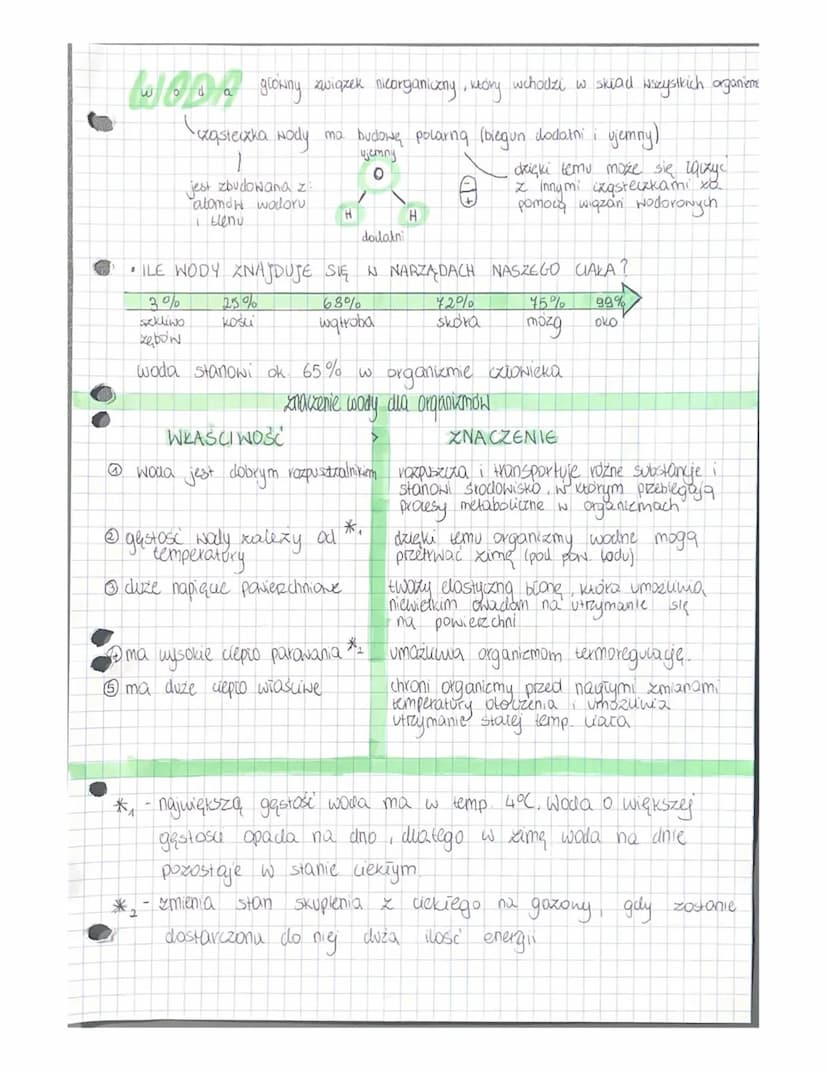 WODA główny związek nieorganiczny, który wchodzi w skład wszystkich organizm
w o d a
cząsteczka wody ma budowę polarną (biegun dodatni i ujemny)
jest zbudowana z:
atomów wodoru
i tlenu
ujemny
O
H H
dodatni
- +
dzięki temu może się łączyć
z innymi cząsteczkami za
pomocą wiązań wodorowych
• ILE WODY ZNAJDUJE SIĘ W NARZĄDACH NASZEGO CIAŁA?
3% 25% 68% 72% 75% 99%
szkliwo kości wątroba skóra mózg oko
zębów
woda stanowi ok. 65% w organizmie człowieka
znaczenie wody dla organizmów
WŁAŚCIWOŚĆ > ZNACZENIE
① woda jest dobrym rozpuszczalnikiem
rozpuszcza i transportuje różne substancje i
stanowi środowisko, w którym przebiegają
procesy metaboliczne w organizmach
② gęstość wody zależy od *1
temperatury
dzięki temu organizmy wodne mogą
przetrwać zimę (pod pow. lodu)
③ duże napięcie powierzchniowe
tworzy elastyczną błonę, która umożliwia
niewielkim owadom na utrzymanie się
na powierzchni
④ ma wysokie ciepło parowania *2
umożliwia organizmom termoregulację.
⑤ ma duże ciepło właściwe
chroni organizmy przed nagłymi zmianami
temperatury otoczenia i umożliwia
utrzymanie stałej temp. ciała
*1 - największą gęstość woda ma w temp. 4°C. Woda o większej
gęstości opada na dno, dlatego w zimę woda na dnie
pozostaje w stanie ciekłym.
*2 - zmienia stan skupienia z ciekłego na gazowy, gdy zostanie
dostarczona do niej duża ilość energii